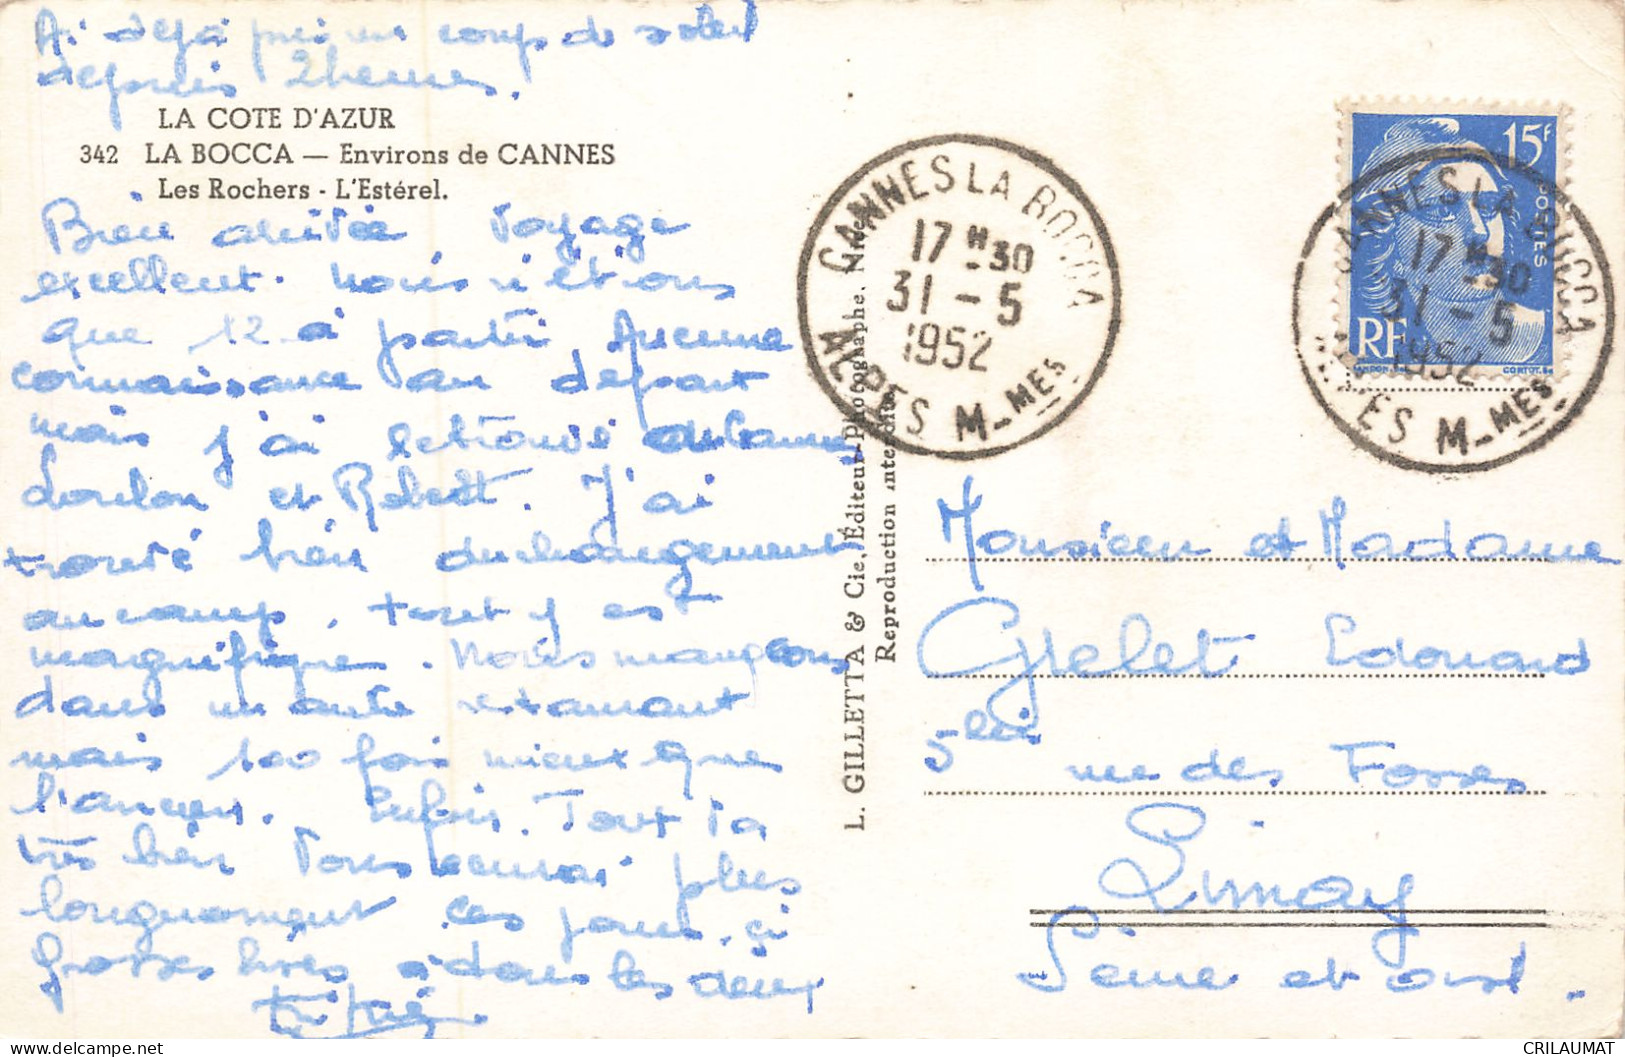 Ai deja pris un coup de soleil
depuis 2 heures.
LA COTE D'AZUR
342 LA BOCCA — Environs de CANNES
Les Rochers - L'Estérel.
Bien arrivée, voyage
excellent. Nous n'étions
que 12 à partir. Aucune
connaissance au départ
mais j'ai retrouvé
Loulou et Robert. J'ai
trouvé bien du changement
au camp, tout y est
magnifique. Nous mangeons
dans un autre restaurant
mais 100 fois mieux que
l'ancien. Enfin. Tout va
très bien. Vous écrirai plus
longuement ces jours ci
Grosses bises à tous les deux
L. GILLETTA & Cie, Éditeur-Photographe. Nice
Reproduction interdite
CANNES LA BOCCA
17 H 30
31 - 5
1952
ALPES M-MES
15F
POSTES
RF
GANDON
CORTOT
CANNES LA BOCCA
17 H 30
31 - 5
1952
ALPES M-MES
Monsieur et Madame
Grelet Edouard
5 bis rue des Fosses
Limay
Seine et oise.
CRILAUMAT